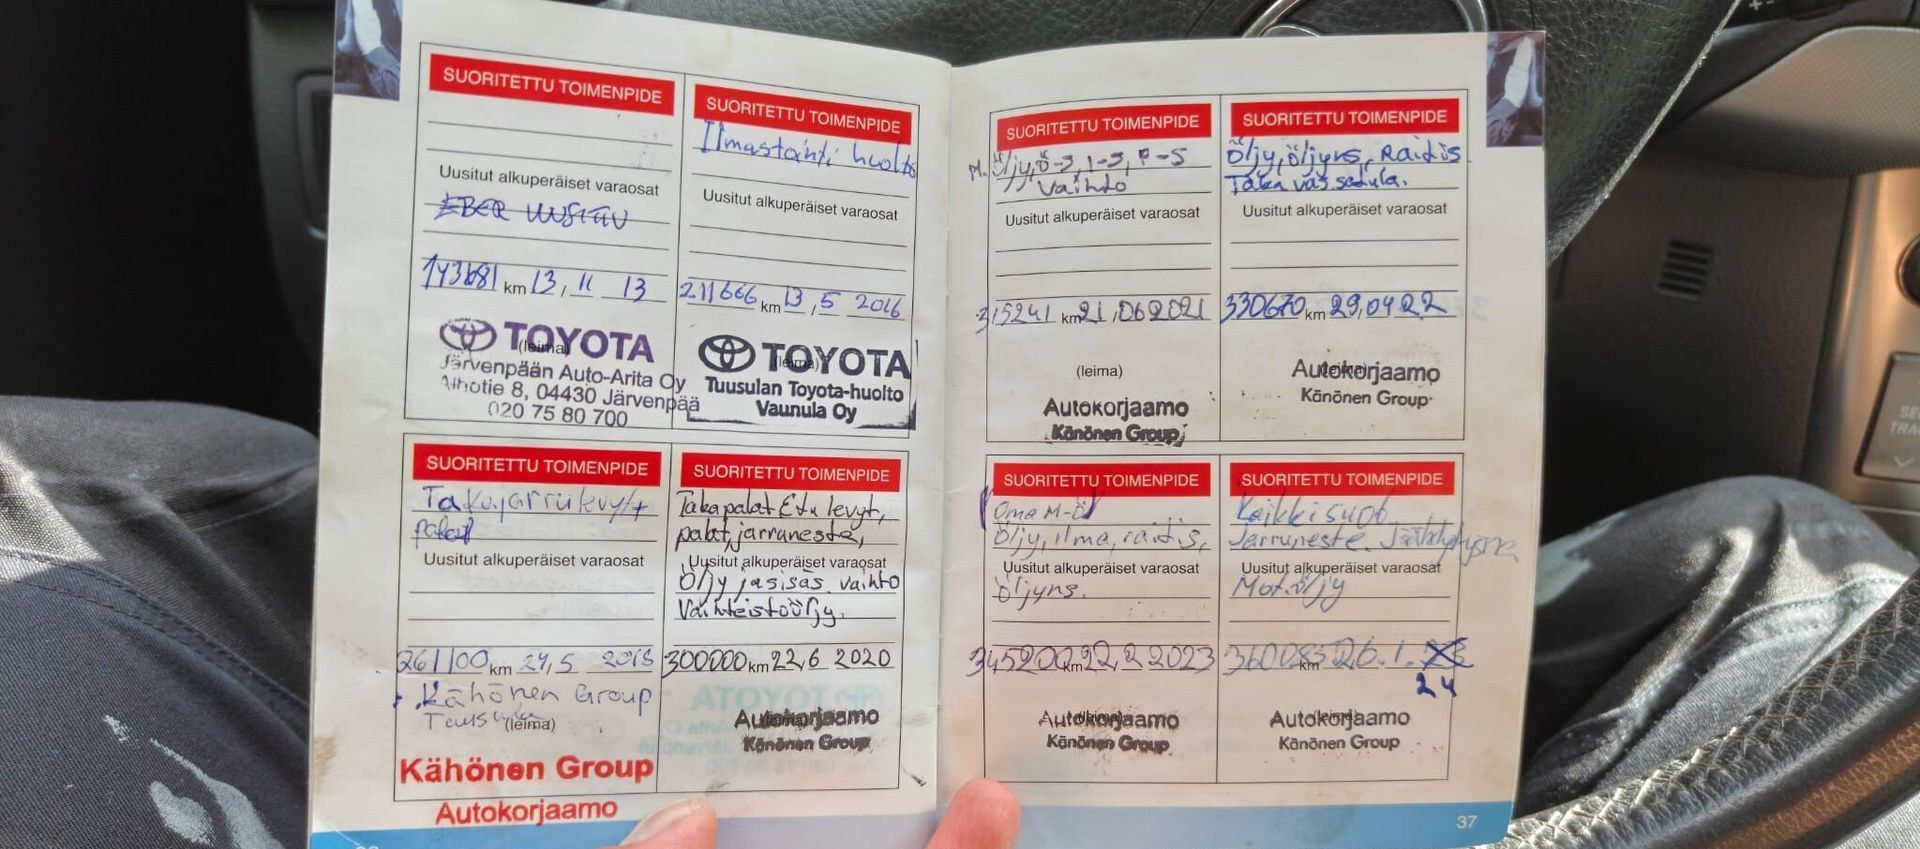 SUORITETTU TOIMENPIDE
Uusitut alkuperäiset varaosat
EBER UUSITTU
143681 km 13, 11 13
(leima)
TOYOTA
Järvenpään Auto-Arita Oy
Alhotie 8, 04430 Järvenpää
020 75 80 700
SUORITETTU TOIMENPIDE
Ilmastointi huolto
Uusitut alkuperäiset varaosat
211666 km 13,5 2016
(leima)
TOYOTA
Tuusulan Toyota-huolto
Vaunula Oy
SUORITETTU TOIMENPIDE
Takajarrulevyt+
palat
Uusitut alkuperäiset varaosat
261100 km 24,5 2018
Kähönen Group
(leima)
Kähönen Group
Autokorjaamo
SUORITETTU TOIMENPIDE
Takapalat Etulevyt,
palat, jarruneste,
Uusitut alkuperäiset varaosat
Öljy ja sisäs. vaihto
Vaihteistoöljy.
300000 km 22,6 2020
(leima)
Autokorjaamo
Könönen Group
SUORITETTU TOIMENPIDE
M. Öljy, Ö-S, I-S, P-S
Vaihto
Uusitut alkuperäiset varaosat
315241 km 21,06 2021
(leima)
Autokorjaamo
Könönen Group
SUORITETTU TOIMENPIDE
Öljy, öljyns, Raitis
Taka vas satula.
Uusitut alkuperäiset varaosat
330670 km 29,04 22
(leima)
Autokorjaamo
Könönen Group
SUORITETTU TOIMENPIDE
(Oma M-Ö)
Öljy, ilma, raitis,
Uusitut alkuperäiset varaosat
Öljyns.
345200 km 22,2 2023
(leima)
Autokorjaamo
Könönen Group
SUORITETTU TOIMENPIDE
Kaikki suod.
Jarruneste.
Uusitut alkuperäiset varaosat
Mot.öljy
360083 km 26.1.
24
(leima)
Autokorjaamo
Könönen Group
37